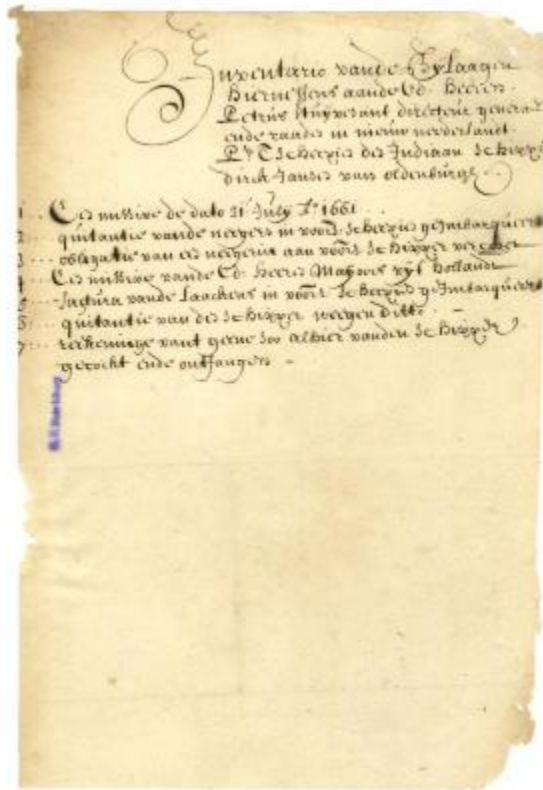 Inventario vande Bylaagen
hiernessens aande Ed. Heeren.
Petrus Stuyvesant directeur generael
ende raaden in nieuw nederlandt
Pr T Scheepie den Indiaan Schipper
dirck Jansen van oldenburgh
1 Een missive de dato 21 July Ao 1661
2 quitantie vande negers in voorn Scheepie geImbarqueert
3 obligatie van een negerin aan voorn Schipper
4 Een missive vande Ed. Heeren Mayoris uyt Hollandt
5 factura vande Laackens in voorn Scheepie geImbarqueert
6 quitantie van den Schipper wegen ditto
7 reekeninge vant geene soo alhier vanden Schipper
gecocht ende ontfangen